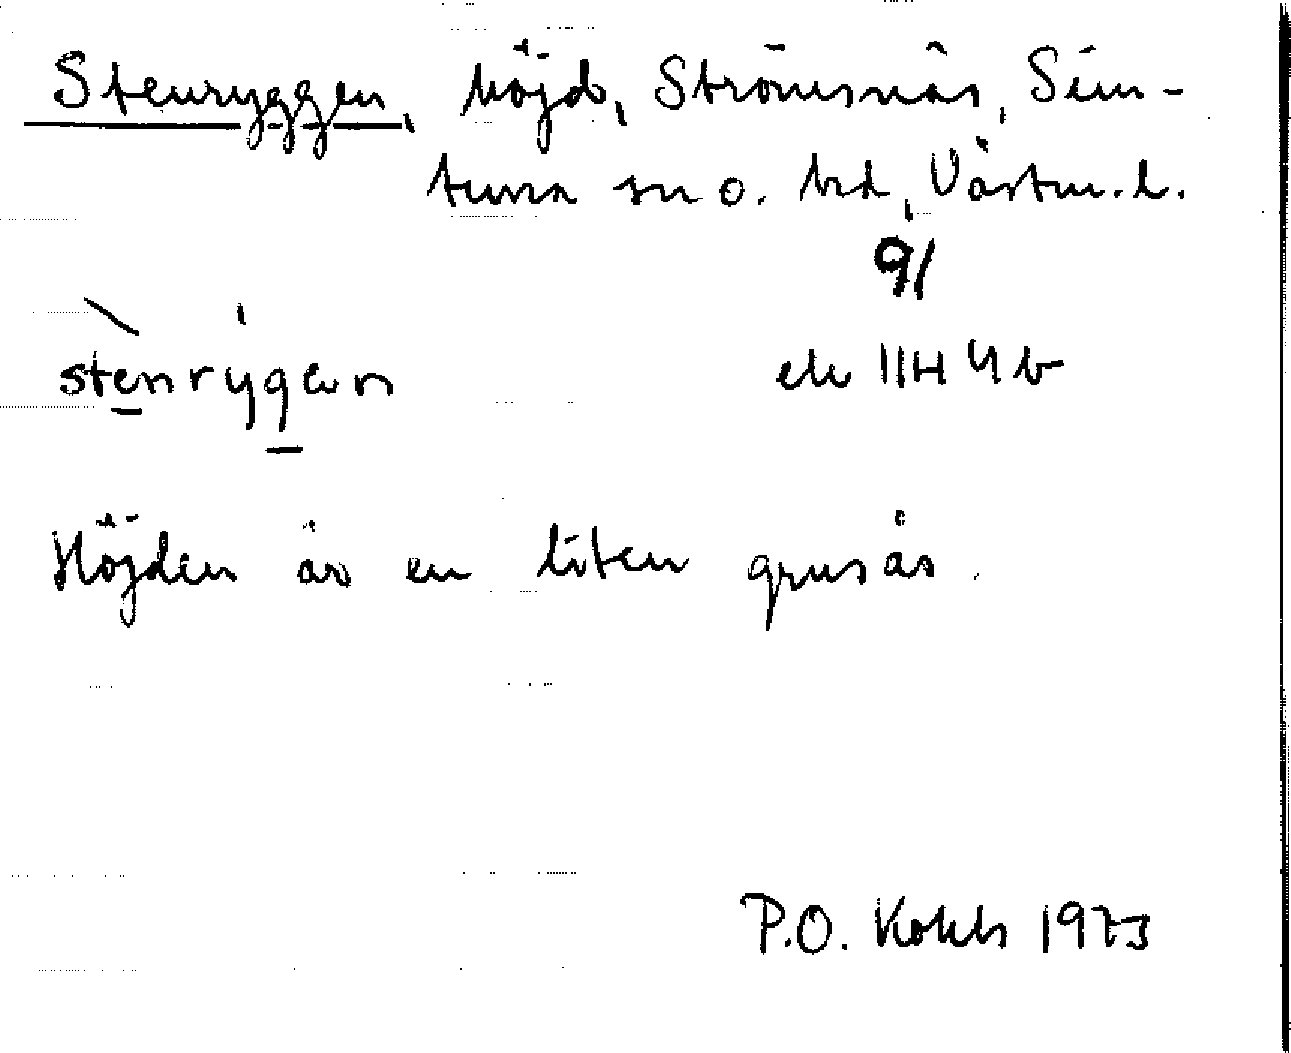 Stenryggen, höjd, Strömsnäs, Sim-
tuna sn o. hd, Västm. l.
91
stènrýgen
ek 11H 4b
Höjden är en liten grusås.
P.O. 1973